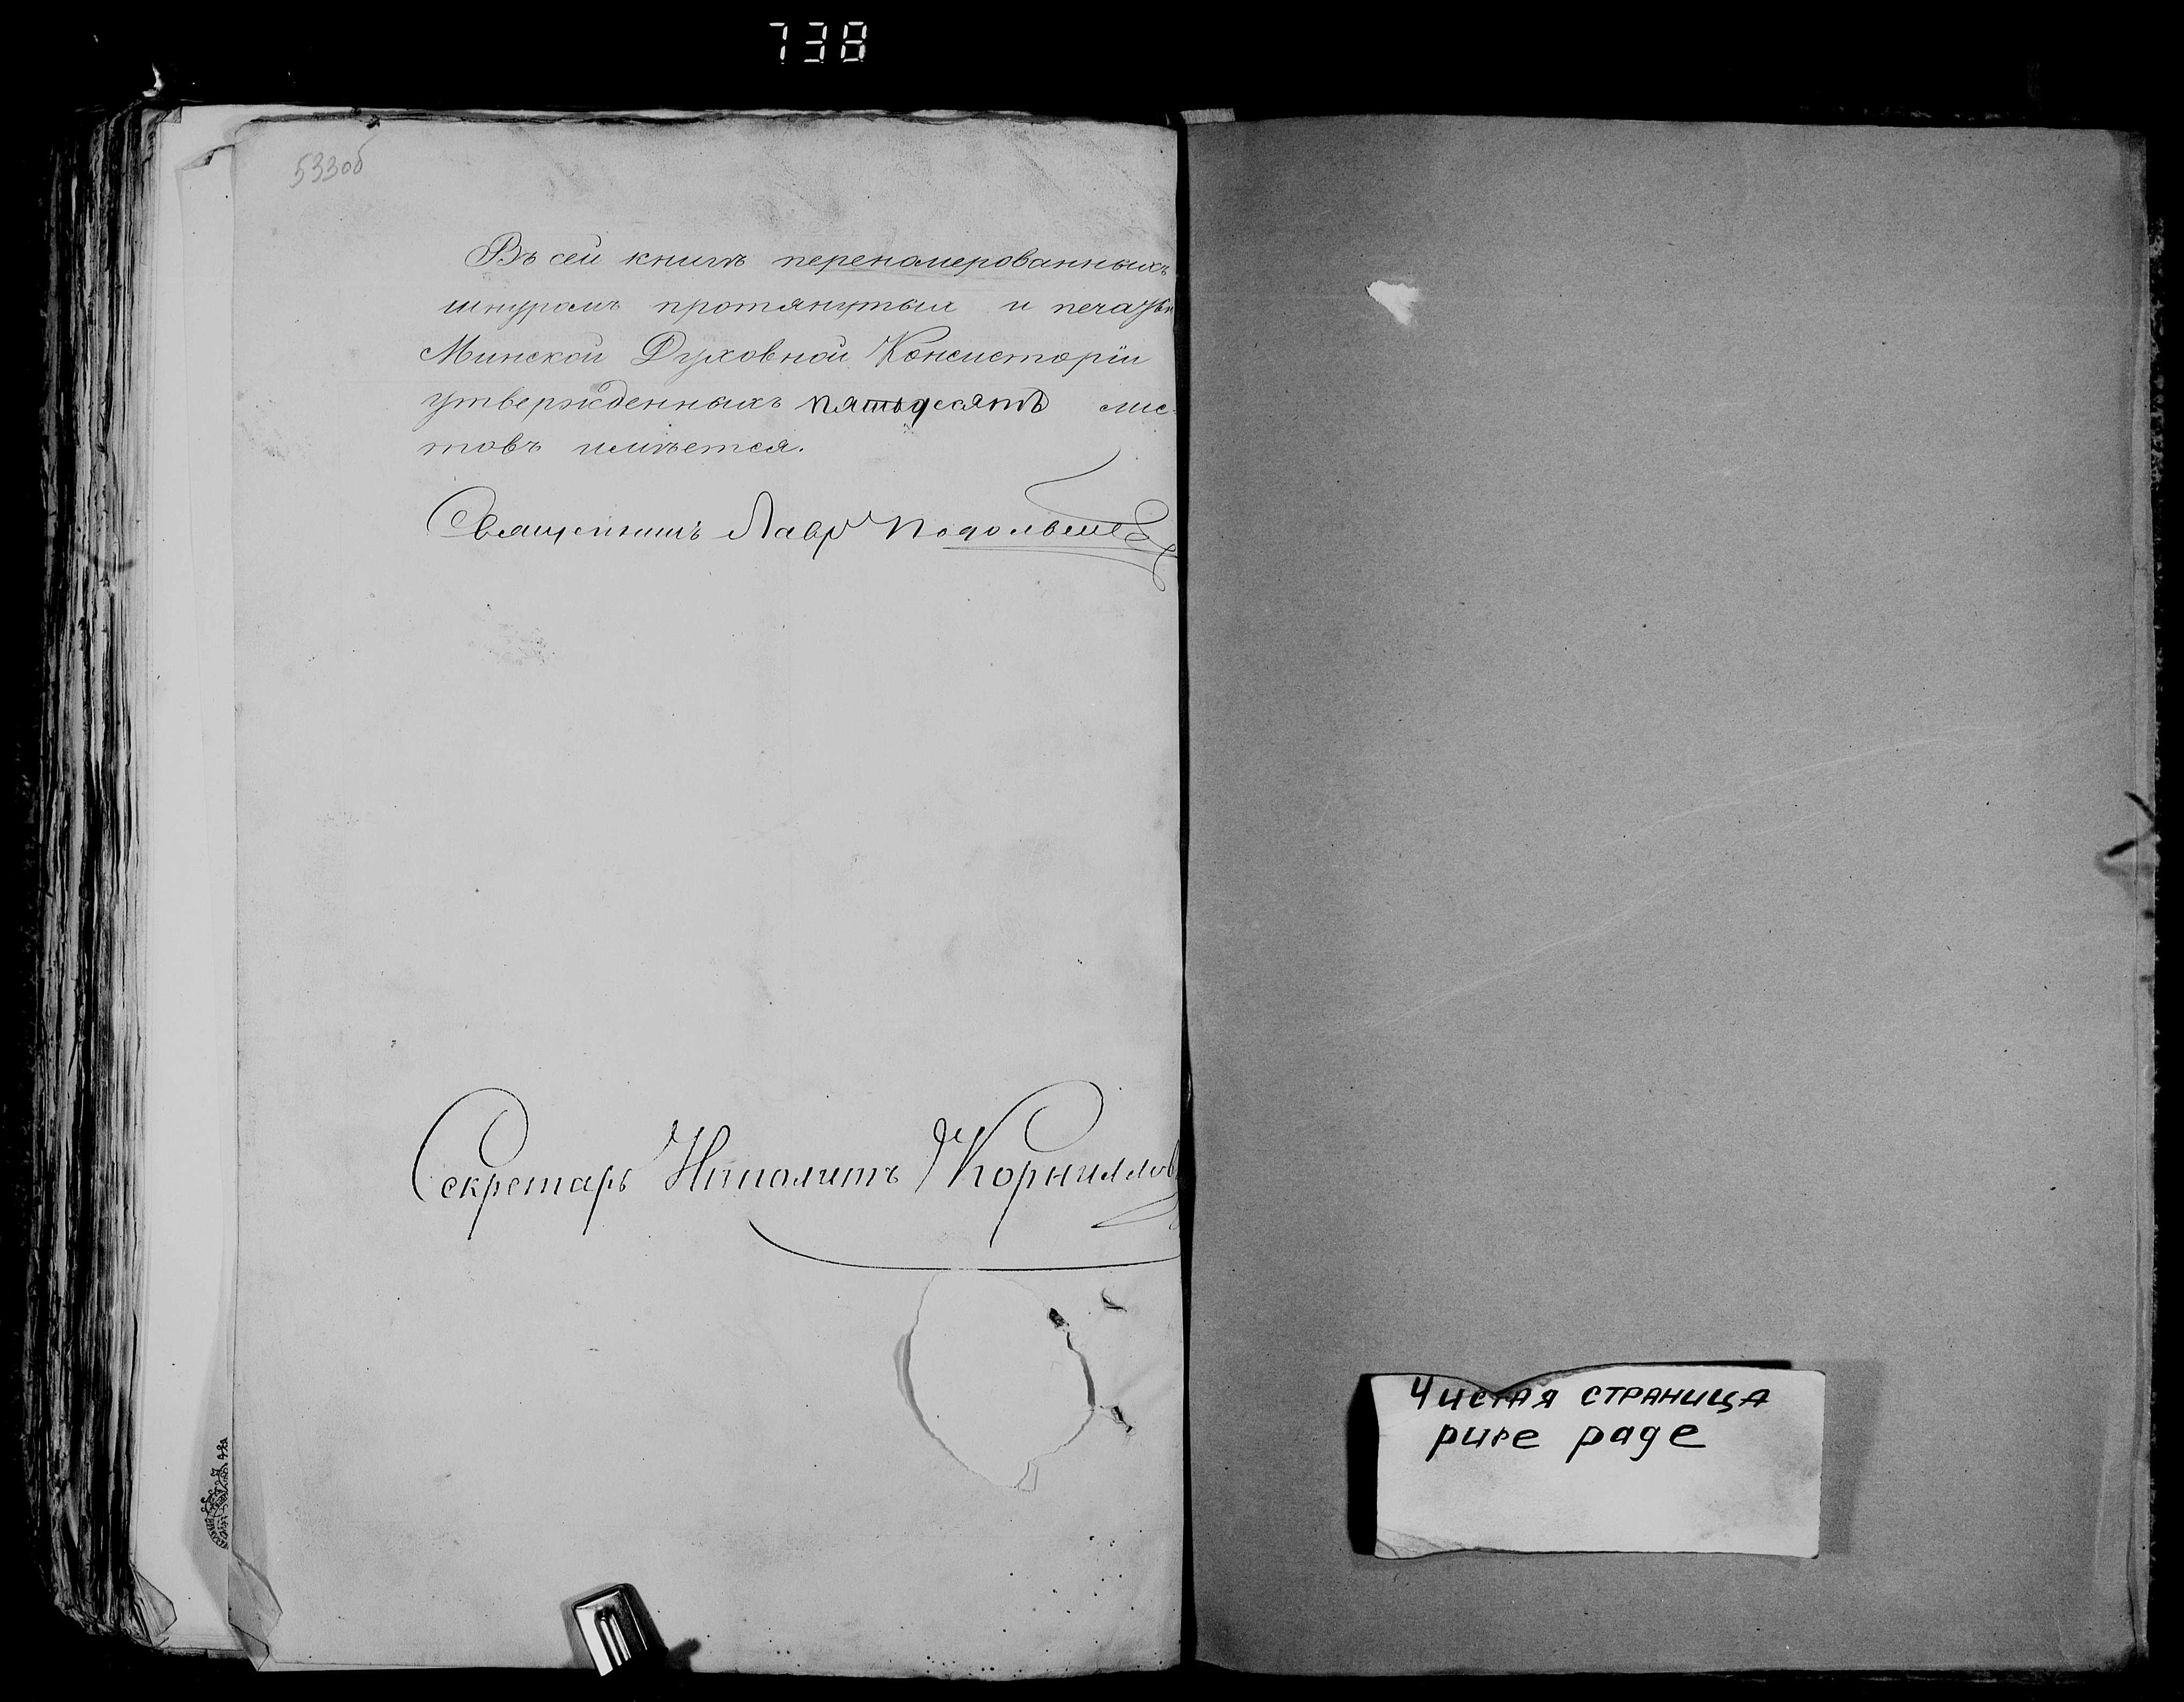 738
533об
Въ сей книгѣ переномерованныхъ
шнуромъ протянутыхъ и печатью
Минской Духовной Консисторіи
утвержденныхъ пятьдесятъ лис-
товъ имѣется.
Священникъ Лавръ
Секретарь Ипполитъ Корнилов
Чистая страница
pure page